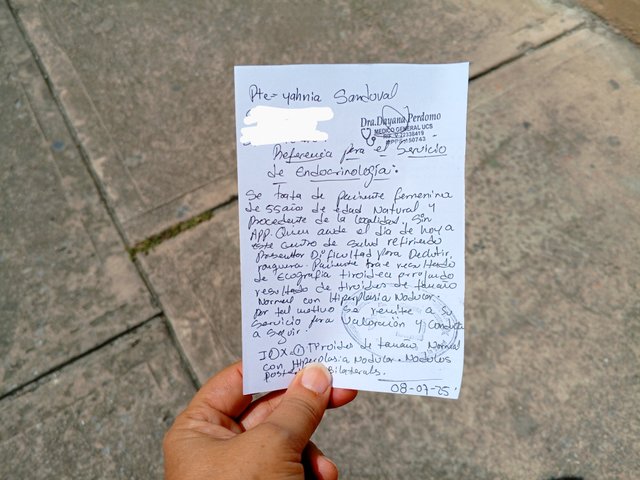 Pte = Yahnia Sandoval
Dra. Dayana Perdomo
MEDICO GENERAL UCS
Referencia para el Servicio
de Endocrinología:
Se trata de paciente femenina
de 55 años de edad Natural y
Procedente de la localidad, Sin
APP. Quien acude el dia de hoy a
este centro de salud refiriendo
Presentar Dificultad para
Paciente trae resultado
de Ecografia tiroidea arrojando
resultado de tiroides de tamaño
Normal con Hiperplasia Nodular,
por tal motivo se remite a su
Servicio para Valoración y Conducta
a Seguir.
IDX: ① Tiroides de tamaño Normal
con Hiperplasia Nodular. Nodulos
Bilaterales.
08-07-25